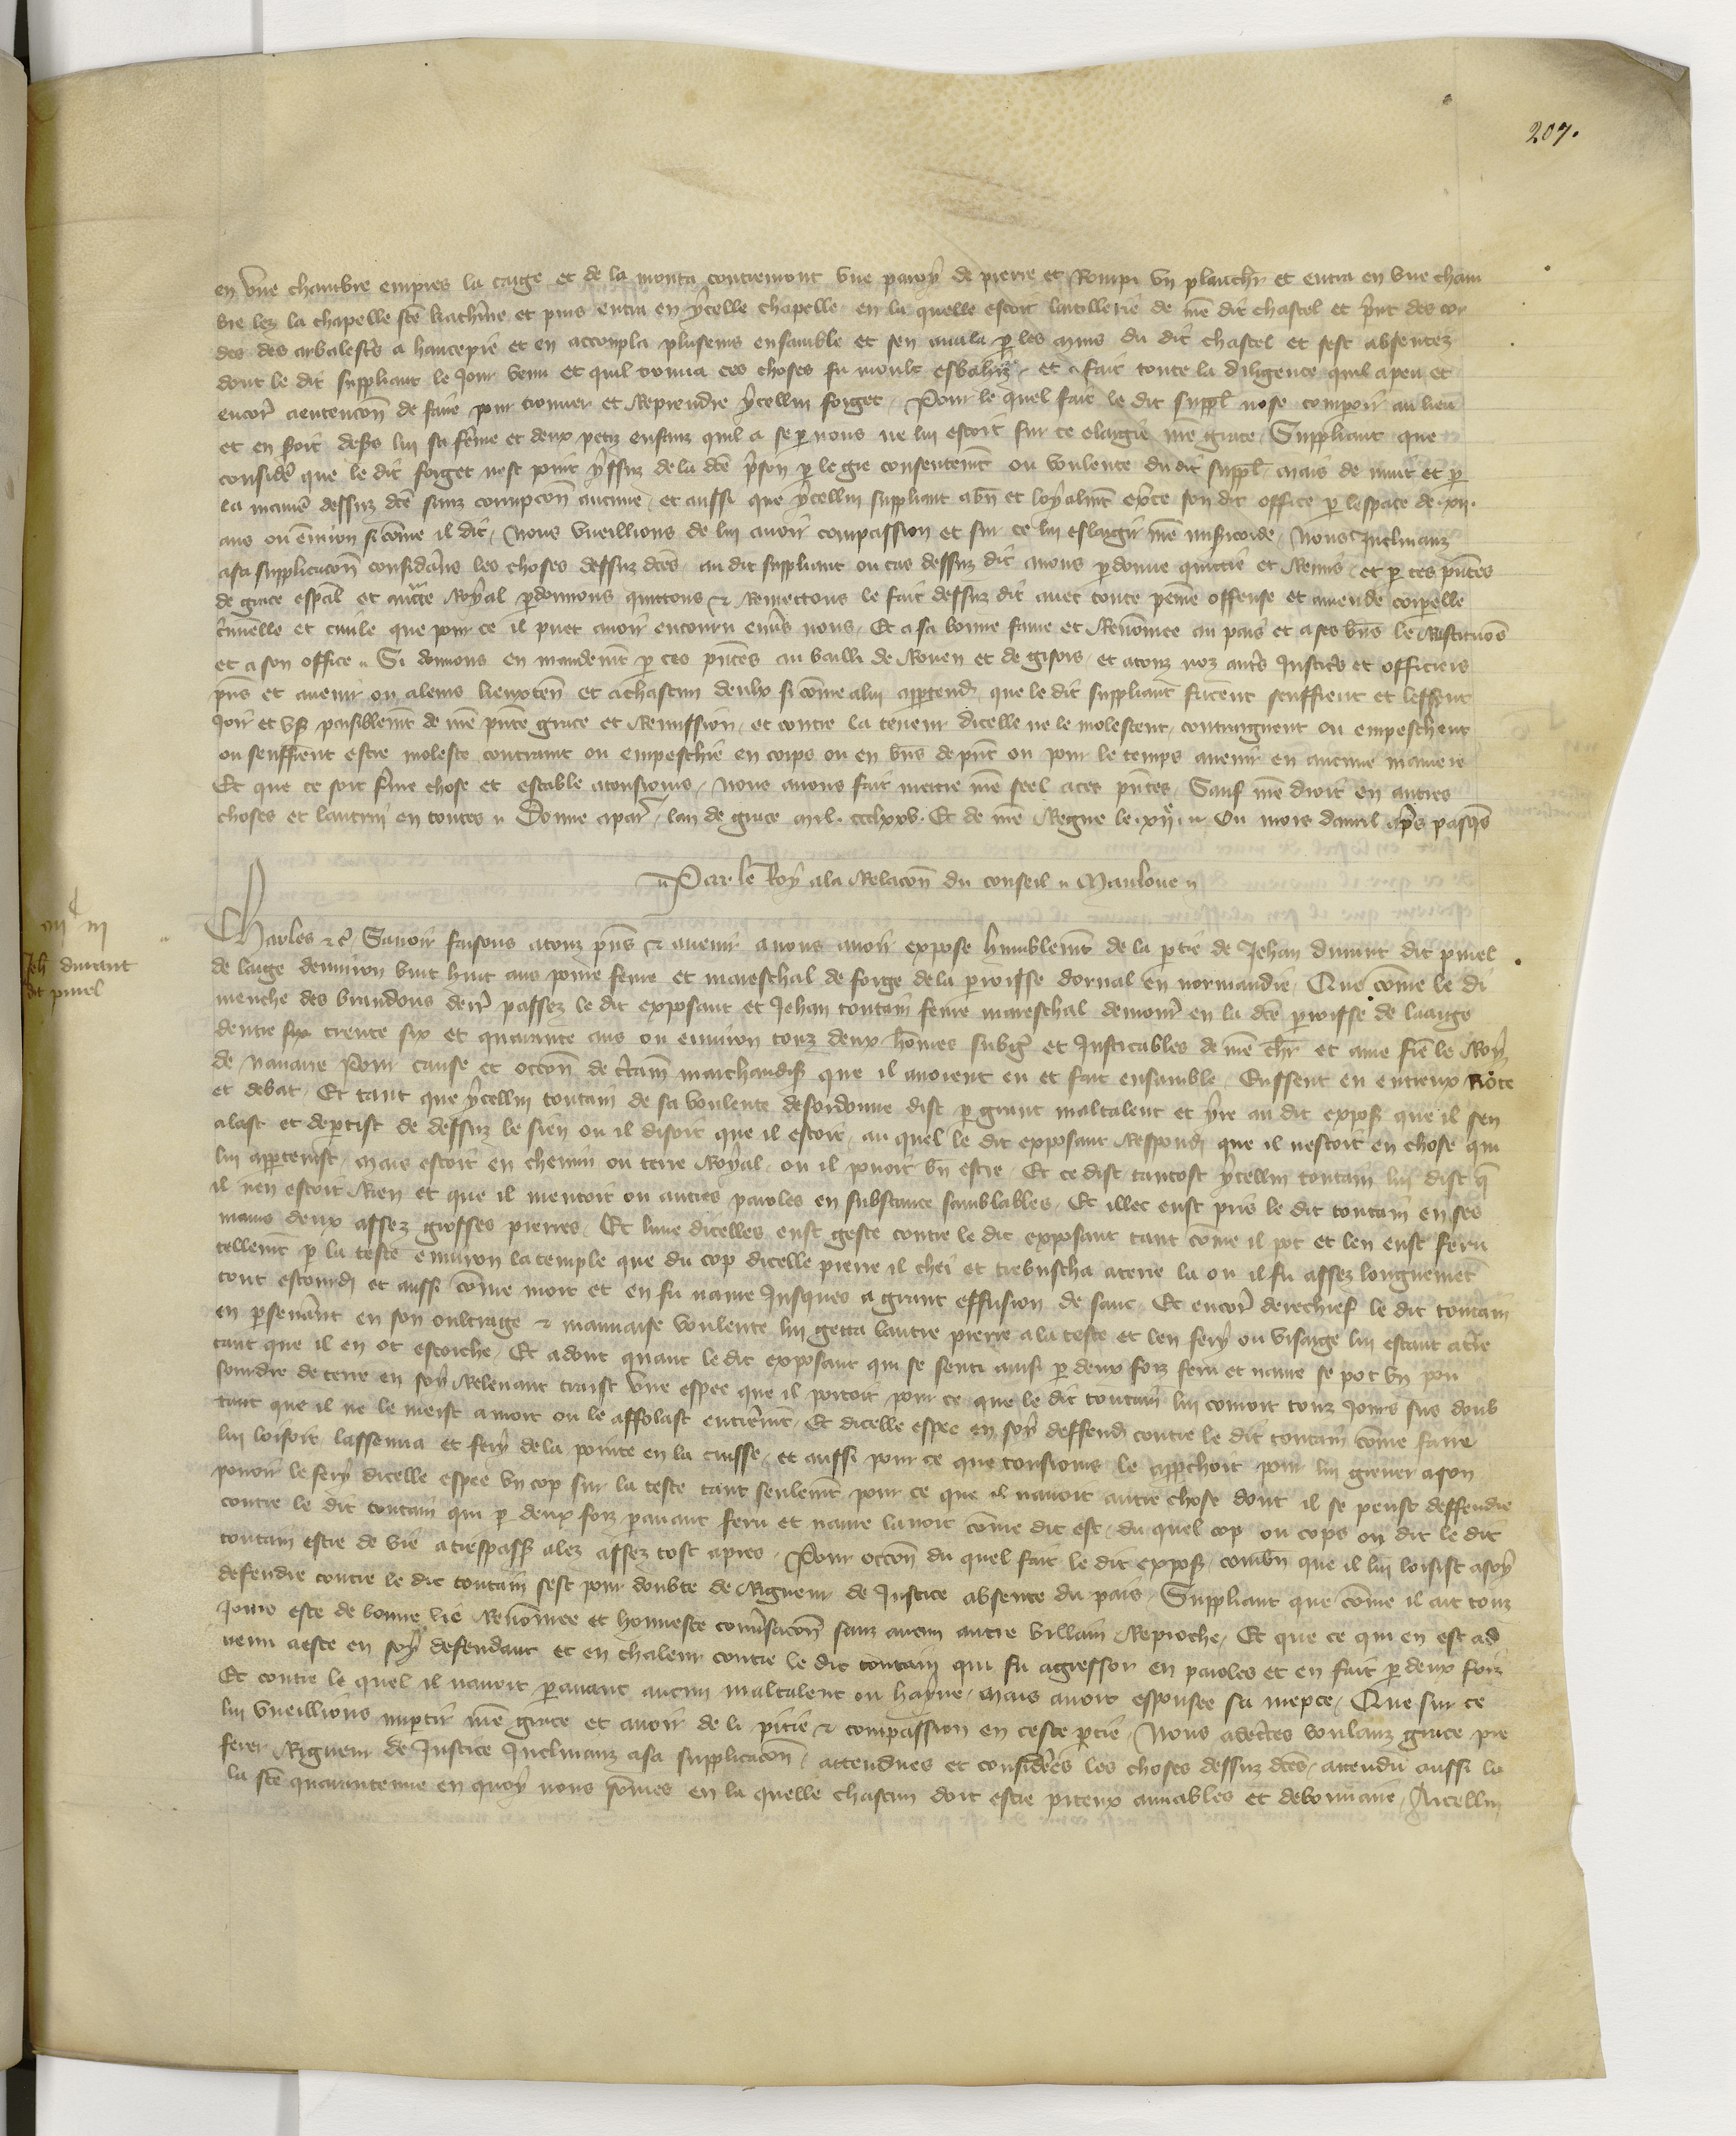 207.
en une chambre empres la cage et de la monta contremont une paroy de pierre et Rompi un planchr et entra en une cham
bre lez la chapelle ste kathine et puis entra en ycelle chapelle en la quelle estoit lartillerie de nre dit chastel et print des cor
des des arbalestes a haucepie et en accoupla pluseurs ensamble et sen avala p les murs du dit chastel et sest absentez
dont le dit suppliant le jour venu et quil trouva ces choses fu moult esbahiz et a fait toute la diligence quil a peu et
encor a entencon de faire pour trouver et Reprendre ycellui forget Pour le quel fait le dit suppl nose comparoir au lieu
et en soit desers lui sa feme et deux petiz enfanz quil a se p nous ne lui estoit sur ce eslargie nre grace Suppliant que
consider que le dit forget nest point yssuz de la dce pson p le gre consentemt ou voulente du dit suppl mais de nuit et p
la maniere dessuz dce sanz corrupcon aucune et aussi que ycellui suppliant a bn et loyalmt exerce son dit office p lespace de xii
ans ou environ si come il dit Nous vueillions de lui avoir compassion et sur ce lui eslargir nre misicorde Nous Inclinanz
a sa supplicacon considans les choses dessuz dces au dit suppliant ou cas dessuz dit avons pdonne quittie et Remis et p ces pntes
de grace espal et auctte Royal pdonnons quittons et Remettons le fait dessuz dit avec toute peine offense et amende corporelle
criminelle et civile que pour ce il puet avoir encouru envers nous Et a sa bonne fame et Renomee au pais et a ses bns le Restituos
et a son office Si donnons en mandemt p ces pntes au bailli de Rouen et de gisors et a touz noz autrs Justicrs et officiers
pns et avenir ou a leurs lieuxten et a chascun deulx si come a lui apptendra que le dit suppliant facent seuffrent et lessent
Joir et us paisiblemt de nre pnte grace et Remission et contre la teneur dicelle ne le molestent contraignent ou empeschent
ou seuffrent estre moleste contraint ou empeschie en corps ou en bns de pnt ou pour le temps avenir en aucune maniere
Et que ce soit ferme chose et estable a tousjours Nous avons fait mettre nre seel a ces pntes Sauf nre droit en autres
choses et lautrui en toutes Donne a par lan de grace mil ccclxxv Et de nre Regne le xiie Ou mois davril aprs pasqs
Par le Roy a la Relacon du conseil Mauloue
Jeh durant
dit pinel
Charles etc Savoir faisons a touz pns et avenir a nous avoir expose humblemt de la ptie de Jehan durant dit pinel
de laage denviron vint huit ans povre fevre et mareschal de forge de la paroisse dorval en normandie Que come le di
menche des brandons derr passez le dit exposant et Jehan toutain fevre mareschal demour en la dce paroisse de laaige
dentre six trente six et quarante ans ou environ touz deux homes subgez et Justicables de nre chr et ame fre le Roy
de navarre Pour cause et occon de ctain marchandis que il avoient eu et fait ensamble Eussent eu entreux Riote
et debat Et tant que ycellui toutain de sa voulente desordonne dist p grant maltalent et yre au dit expos que il sen
alast et deptist de dessuz le sien ou il disoit que il estoit au quel le dit exposant Respondi que il nestoit en chose qui
lui apptenist mais estoit en chemin ou terre Royal ou il povoit bn estre Et ce dist tantost ycellui toutain lui dist q
il nen estoit Rien et que il mentoit ou autres paroles en substance samblables Et illec eust pris le dit toutain en ses
mains deux assez grosses pierres Et lune dicelles eust geste contre le dit exposant tant come il pot et len eust feru
tellemt p la teste environ la temple que du cop dicelle pierre il chei et trebuscha a terre la ou il fu assez longuemet
tout estourdi et aussi come mort et en fu navre Jusques a grant effusion de sanc Et encor derechief le dit toutain
en pseverant en son oultrage et mauvaise voulente lui getta lautre pierre a la teste et len fery ou visaige lui estant a tre
tant que il en ot escorche Et adont quant le dit exposant qui se senti ainsi p deux foiz feru et navre se pot un pou
sourdre de terre en soy Relevant traist une espee que il portoit pour ce que le dit toutain lui couroit touz jours sus doub
tant que il ne le meist a mort ou le affolast entierement Et dicelle espee en soy deffend contre le dit toutain come faire
lui loisoit lassena et fery de la pointe en la cuisse et aussi pour ce que tousjours le apprchoit pour lui grever a son
povoir le fery dicelle espee un cop sur la teste tant seulemt pour ce que il navoit autre chose dont il se peust deffendre
contre le dit toutain qui p deux foiz pavant feru et navre lavoit come dit est du quel cop ou cops on dit le dit
toutain estre de vie a trespass alez assez tost apres Pour occon du quel fait le dit expos combn que il lui loisist a soy
defendre contre le dit toutain sest pour doubte de Rigueur de Justice absente du pais Suppliant que come il ait touz
Jours este de bonne vie Renomee et honneste conversacon sanz aucun autre villain Reproche Et que ce qui en est ad
venu a este en soy defendant et en chaleur contre le dit toutain qui fu agressor en paroles et en fait p deux foiz
Et contre le quel il navoit pavant aucun maltalent ou hayne mais avoit espousee sa niepce Que sur ce
lui vueillions impartir nre grace et avoir de li pitie et compassion en ceste ptie Nous adectes voulanz grace pre
ferer Rigueur de Justice Inclinanz a sa supplicacon attendues et considerees les choses dessuz dces attendu aussi la
ste quarantenne en quoy nous somes en la quelle chascun doit estre piteux amiables et debonnaire A icellui